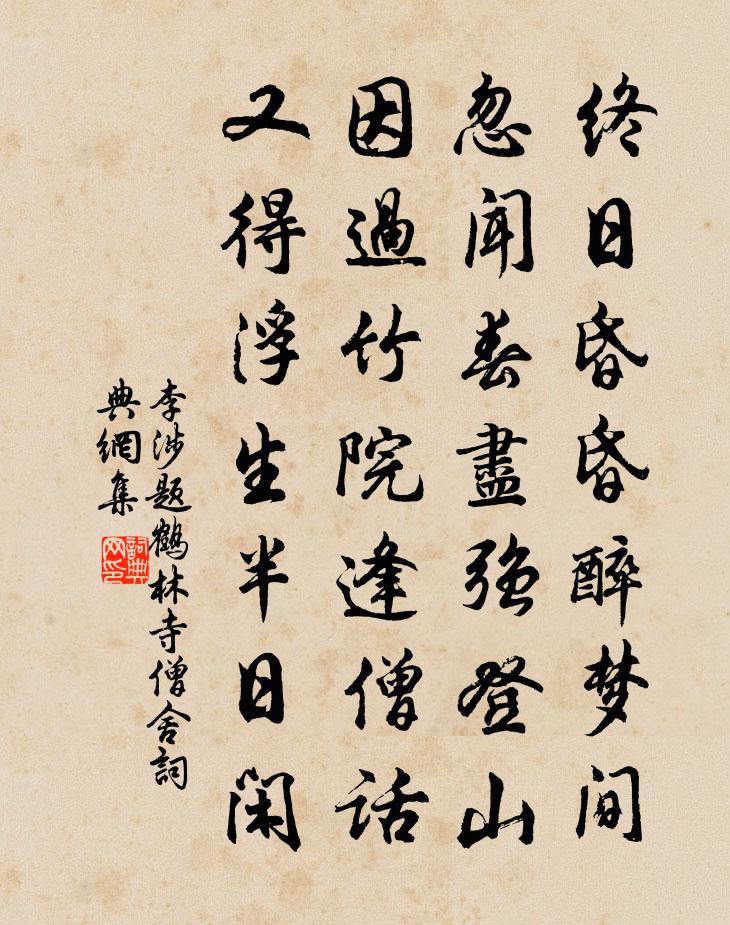 终日昏昏醉梦间
忽闻春盡强登山
因過竹院逢僧话
又得浮生半日闲
李涉题鶴林寺僧舍詞
典網集
詞典
网印